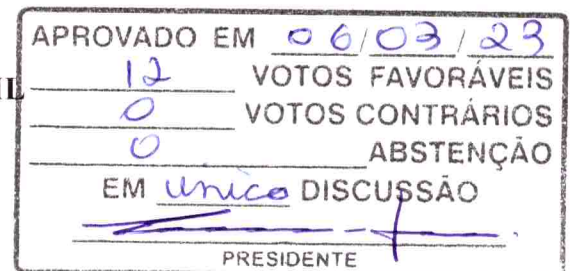 APROVADO EM 06/03/23
IL
12 VOTOS FAVORÁVEIS
0 VOTOS CONTRÁRIOS
0 ABSTENÇÃO
EM unico DISCUSSÃO
PRESIDENTE